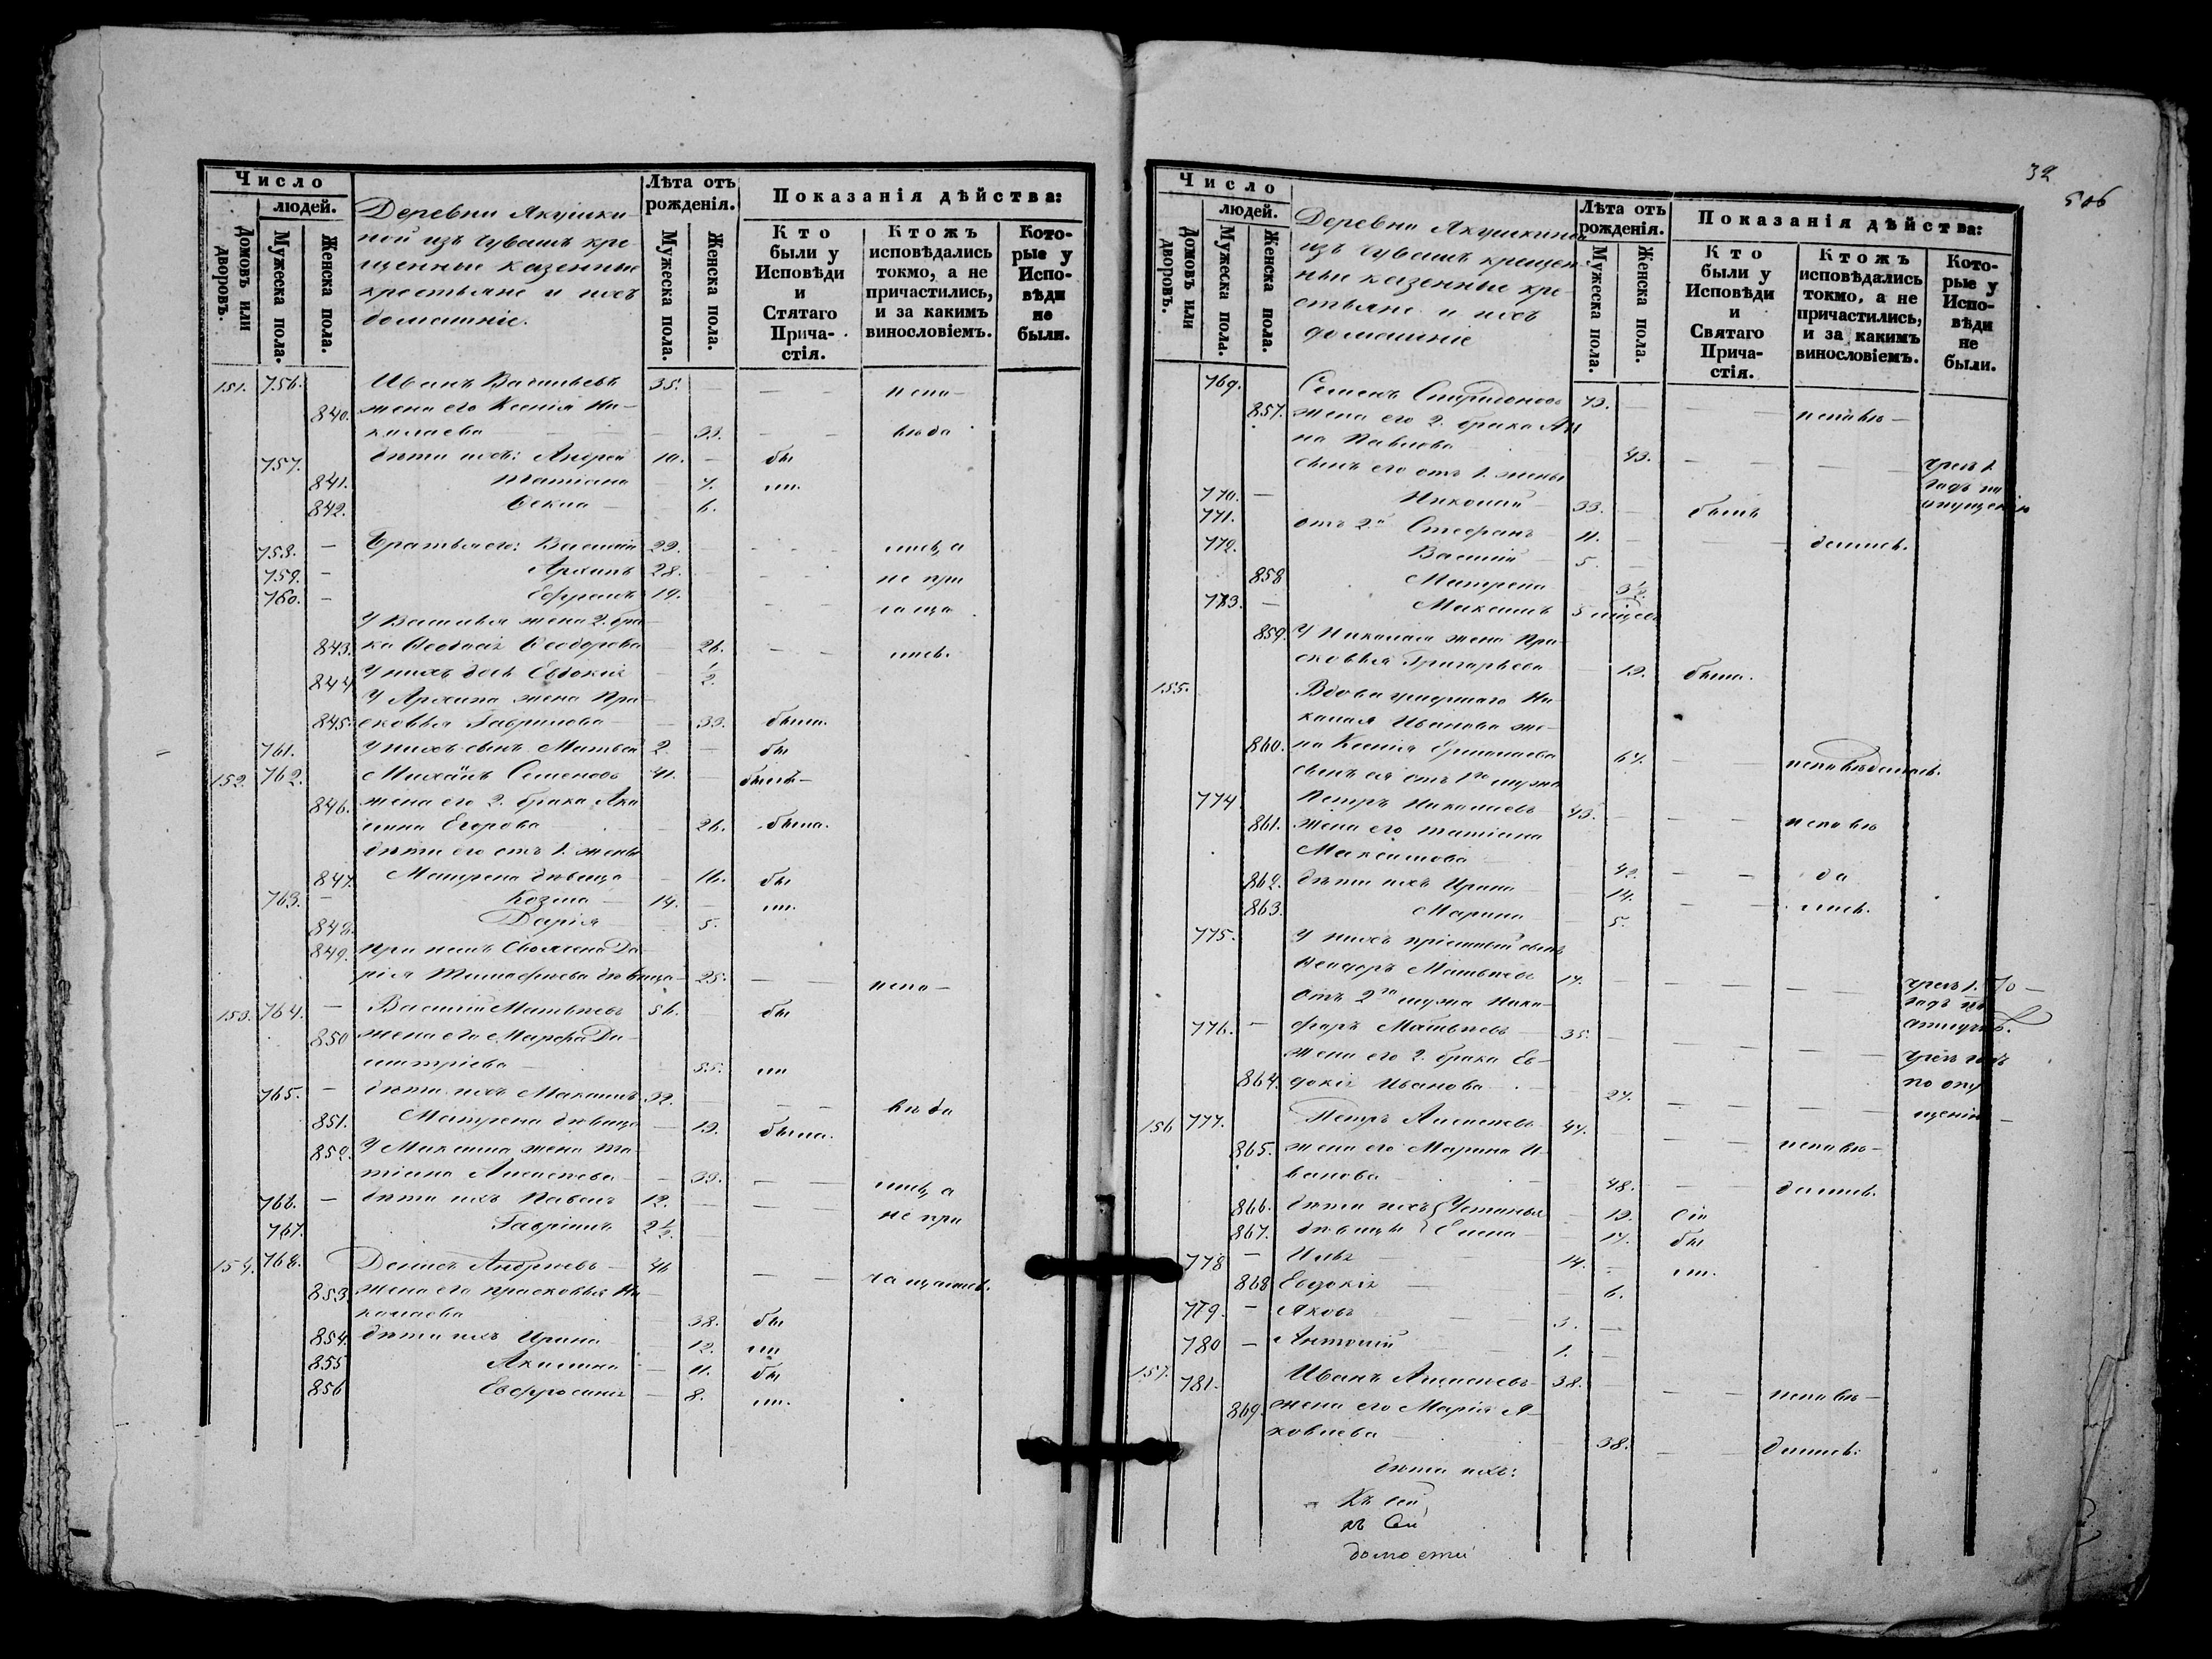 Число
людей.
Домовъ или дворовъ.
Мужеска пола.
Женска пола.
Деревни Якушки-
ной изъ Чувашъ кре-
щенные казенные
крестьяне и ихъ
домашніе.
Лѣта отъ рожденія.
Мужеска пола.
Женска пола.
Показанія дѣйства:
Кто были у Исповѣди и Стятаго Прича-стія.
Ктожъ исповѣдались токмо, а не причастились, и за какимъ винословіемъ.
Кото-рые у Испо-вѣди не были.
151. 756. Иванъ 35. испо-
840. жена его Ксенія Ни-
колаева 33. вѣда
757. дѣти ихъ: Андрей 10. бы
841. Татіана 7. ли.
842. Ѳекла 6.
758. Братья его: Василій 29. лись, а
759. Архипъ 28. не при
760. Ефремъ 19. чаща
У Василья жена 2. бра-
843. ка Ѳеодосія Ѳеодорова 26. лись.
844. У нихъ дочь Евдокія 1/2.
У Архипа жена Пра-
845. сковья Гаврилова 33. была.
761. У нихъ сынъ Матвей 2. бы
152. 762. Михаилъ Семеновъ 41. былъ
846. жена его 2. брака Аки-
лина Егорова 26. была.
дѣти его отъ 1. жены
847. Матрена дѣвица 16. бы
763. Козма 14. ли.
848. Дарія 5.
849. при немъ своячена Да-
рія дѣвица 25. испо-
153. 764. Василій Матвѣевъ 56. бы
850 жена его Марфа Ди-
митріева 55. ли
765. дѣти ихъ Максимъ 32. вѣда
851. Матрена дѣвица 19. была.
852. У Максима жена Та-
тіана Алексѣева 33. лись, а
766. дѣти ихъ Павелъ 12. не при
767. Гавріилъ 2 1/2.
154. 768. Денисъ Андреевъ 46 чащались.
853. жена его Прасковья Ни-
колаева 38. бы
854. дѣти ихъ Ирина 12. ли
855 Акилина 11. бы
856 Евфросинія 8. ли.
32
506
Число
людей.
Домовъ или дворовъ.
Мужеска пола.
Женска пола.
Деревни Якушкиной
изъ Чувашъ крещен-
ные казенные кре-
стьяне и ихъ
домашніе
Лѣта отъ рожденія.
Мужеска пола.
Женска пола.
Показанія дѣйства:
Кто были у Исповѣди и Святаго Прича-стія.
Ктожъ исповѣдались токмо, а не причастились, и за какимъ винословіемъ.
Кото-рые у Испо-вѣди не были.
769. Семенъ Спиридоновъ 73. исповѣ-
857. жена его 2. брака Ан-
на Павлова 43.
сынъ его отъ 1. жены
770. Николай 33. былъ
771. отъ 2й Стефанъ 11. дались.
772. Василій 5.
858 Матрена 3 1/2.
773. Максимъ 5 мѣсяц
859. У Николая жена Пра-
сковья Григорьева 19. была.
155. Вдова умершаго Ни-
колая Иванова же-
860. на Ксенія 67. исповѣдалась.
сынъ ея отъ 1го мужа
774 Петръ Николаевъ 43. исповѣ
861. жена его Татіана
Максимова 42. да
862. дѣти ихъ Ирина 14. лись.
863. Марина 5.
775. У нихъ пріемный сынъ
Матвѣевъ 17. чрезъ 1.
отъ 2го мужа Ники-
776. форъ Матвѣевъ 35.
жена его 2. брака Ев-
864. докія Иванова 27. по опу
щенію
156 777. Петръ Алексѣевъ 47. исповѣ-
865. жена его Марина И-
ванова 48. дались.
866. дѣти ихъ Устинья 19.
867. дѣвицы Елена 17. бы
778 Илья 14. ли.
868 Евдокія 6.
779. Яковъ 3.
780 Антоній 1.
157. 781. Иванъ Алексѣевъ 38. исповѣ-
869. жена его Марія Я-
ковлева 38. дались:
дѣти ихъ:
Къ сей